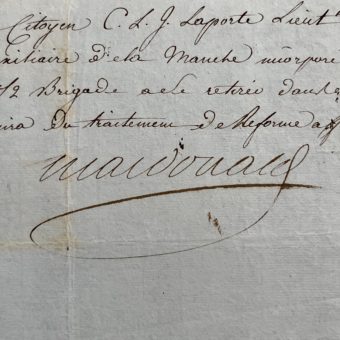 Citoyen C. L. J. Laporte Lieut.t
xiliaire de la Manche incorpore
1/2 Brigade a ete retirée dans
ira du traitement de Reforme a
macdonald